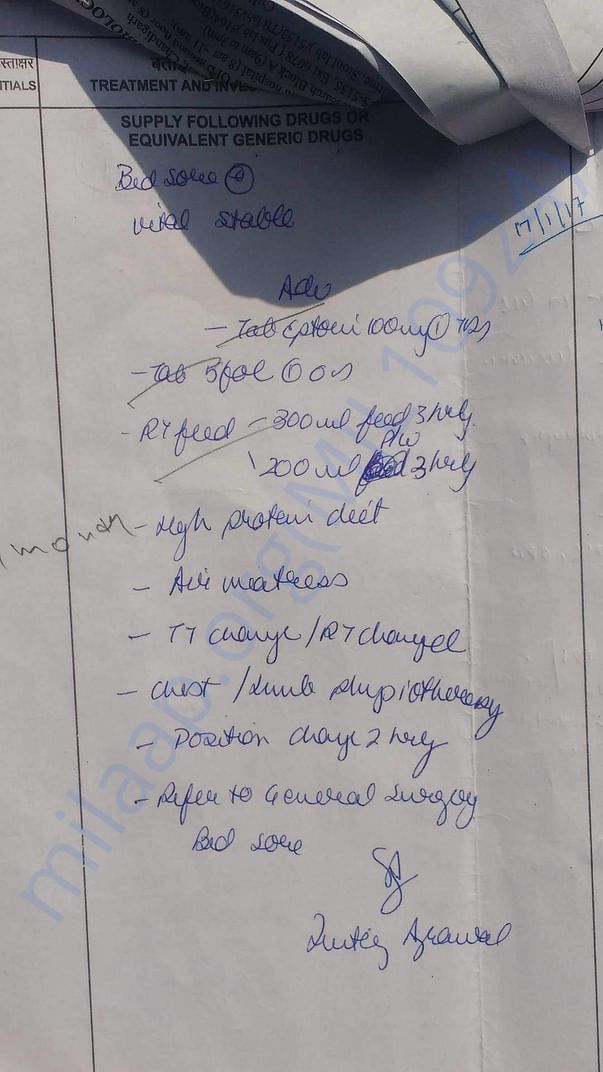 TREATMENT AND INVES
SUPPLY FOLLOWING DRUGS OR
EQUIVALENT GENERIC DRUGS
TIALS
Bed sore ⊕
vital stable
17/1/17
Adv
- Tab Eptoin 100mg ① TDS
- Tab 5fol ① OD
- RT feed - 300 ml feed 3 hrly
200 ml P/W 3 hrly
1 month
- High protein diet
- Air matress
- TT change / RT changed
- Chest / Limb physiotherapy
- Position change 2 hrly
- Refer to General Surgery
Bed sore
Agrawal
milaap.org(MI 10924)